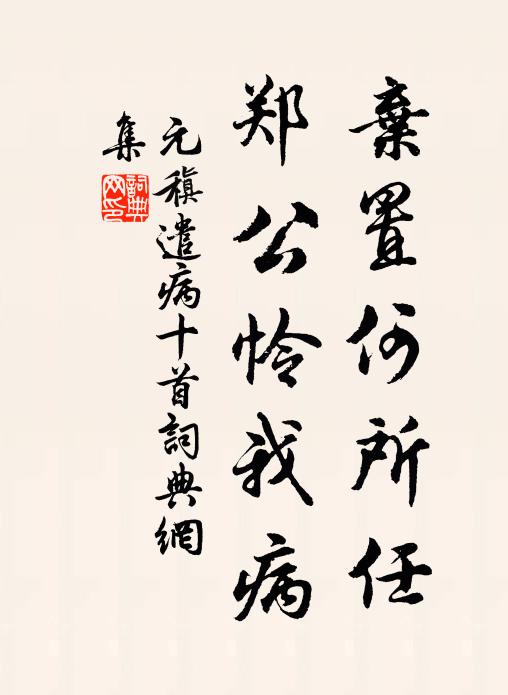 棄置何所任
郑公怜我病
元稹遣病十首詞典網
集
詞典網印